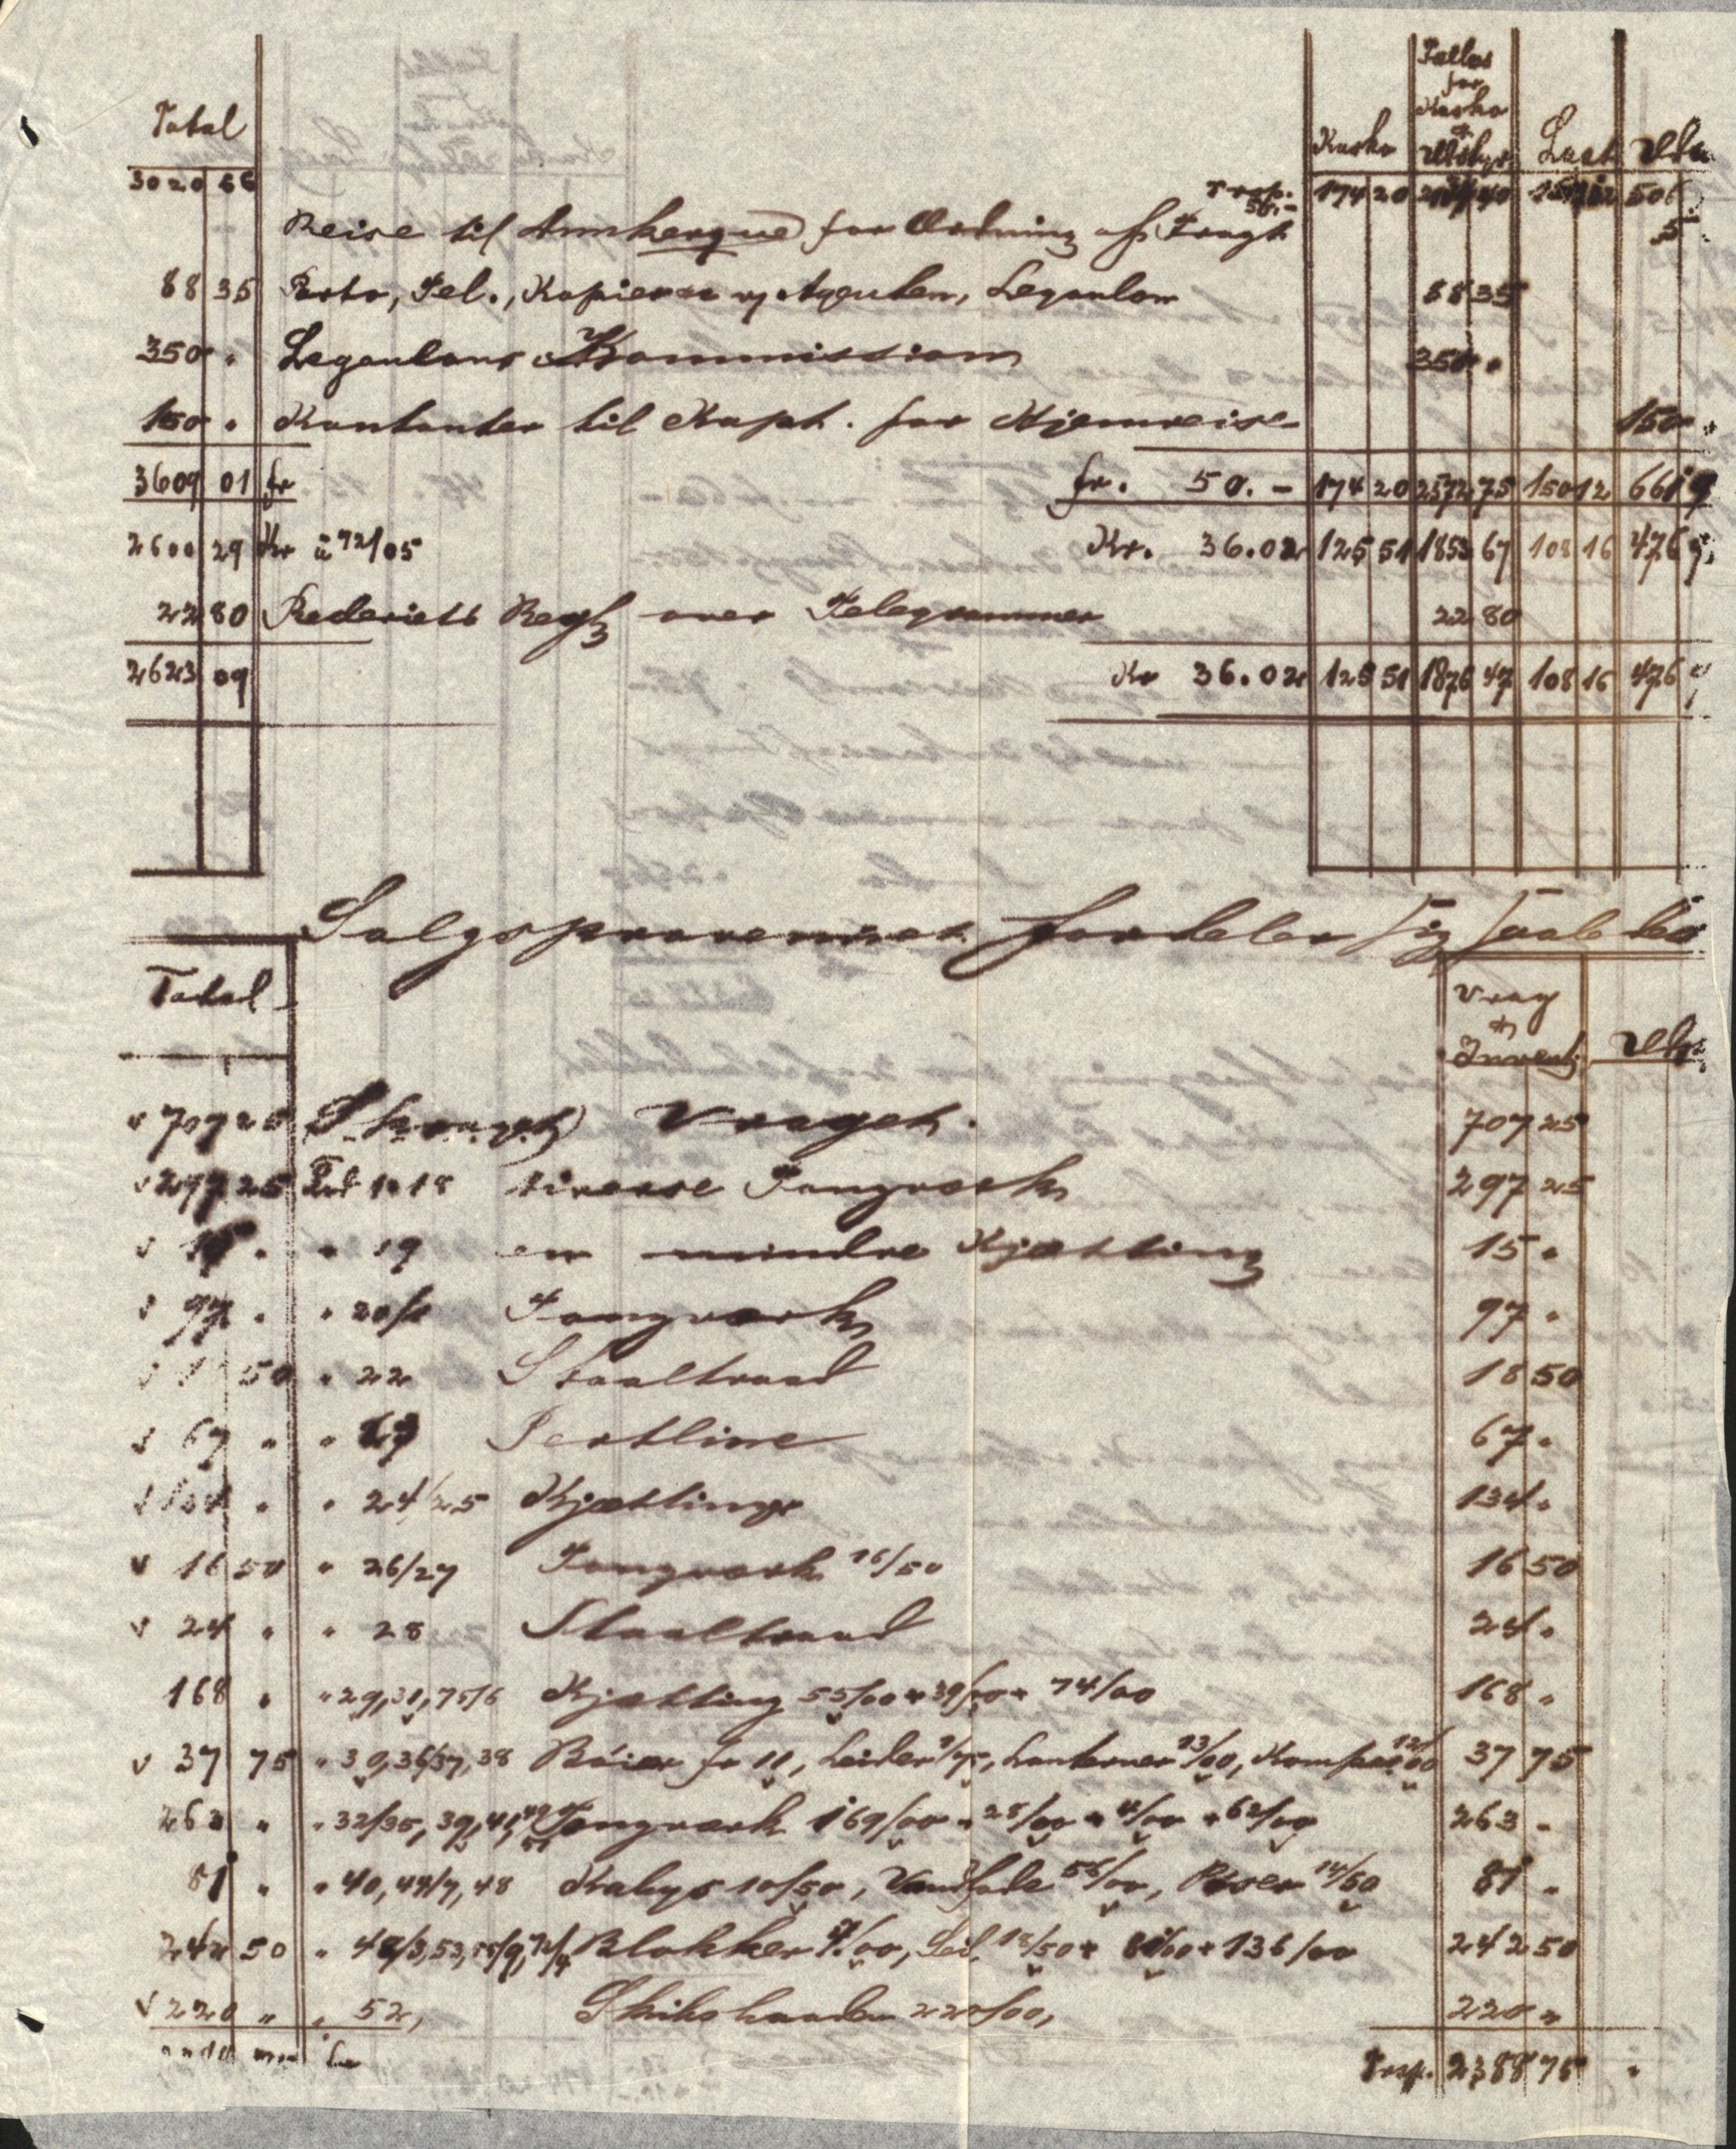 Total
Kasko
Fælles for Kasko & Udstyr
Last
3020 66
Trsp. 50.-
174 20
506
Reise til for Ordning af Fragt
88 35 Porto, Tel., Kopier Agenten, 88 35
350 " Kommission 350 "
150 " Kontanter til Kapt. for Hjemreise 150
3609 01 fr fr. 50.- 174 20 2572 75 150 12 661 9
2600 29 Kr à 72/05 Kr. 36.02 125 51 1853 67 108 16 476 9
22 80 Rederiets Regn over Telegrammer 22 80
2623 09 Kr 36.02 125 51 1876 47 108 16 476 9
Salgsprovenuet fordeler sig saaledes
Total
Vrag & Invent.
v 707 25 Skroget, Vraget. 707 25
v 297 25 18 diverse Tougværk 297 25
v 15 " " 19 en mindre Kjætting 15 "
v 97 " " 20/1 Tougværk 97 "
v 50 " 22 Staaltraad 18 50
v 67 " " 23 Pertline 67 "
v 134 " " 24/25 Kjættinge 134 "
v 16 50 " 26/27 Tougværk 16/50 16 50
v 24 " " 28 Staaltraad 24 "
168 " " 29, 31, 75/6 Kjætting 55/00 + 39/00 + 74/00 168 "
v 37 75 " 30, 36/37, 38 Bøier fr 11, Leider 1/75, Lanterner 13/00, Kompas 12/00 37 75
263 " " 32/35, 39, 41, Tougværk 169/00 + 28/00 + 4/00 + 62/00 263 "
81 " " 40, 44/7, 48 Kabys 10/50, Vandfade 56/00, 14/50 81 "
242 50 " Blokker 7/00, Seil 18/50 + 81/00 + 136/00 242 50
v 220 " " 52, Skibsbaaden 220/00, 220 "
Trsp. 2388 75 "